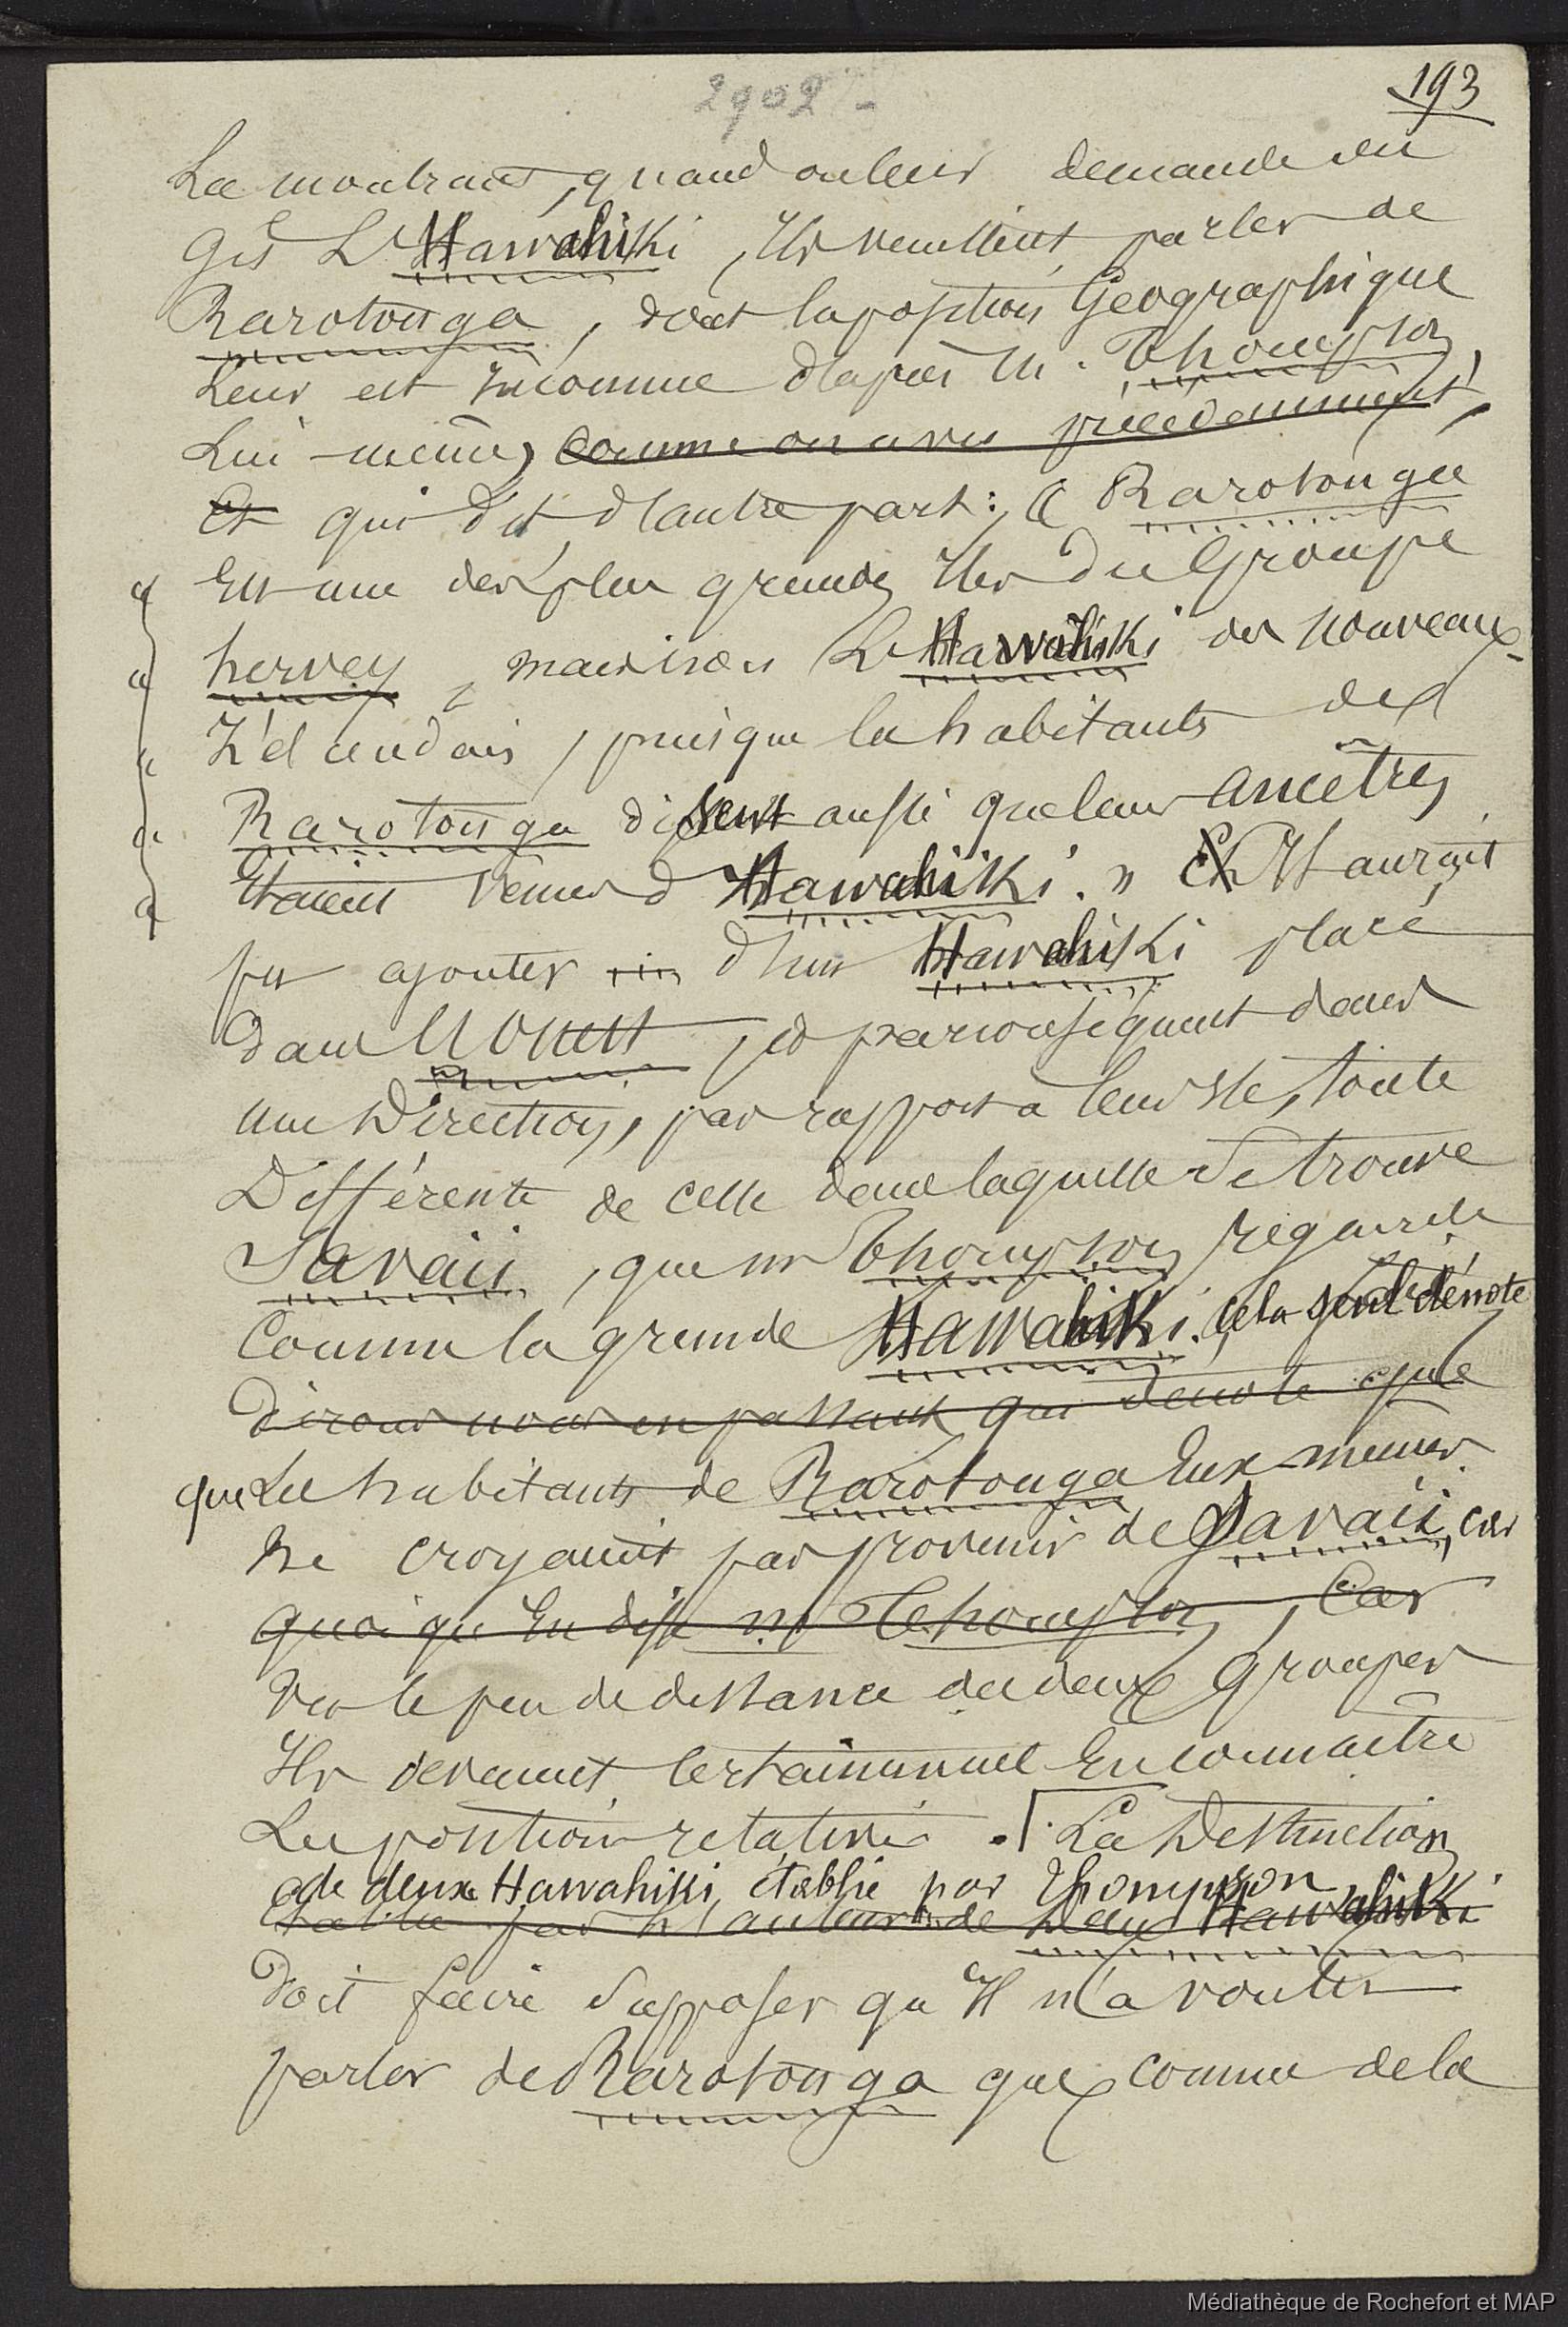 2902 -
193
La montrant, quand on leur demande où
gît L'Hawahiki, Ils veuillent parler de
Rarotonga, dont la position Géographique
Leur est Inconnue d'après M. Thompson
Lui-même, comme on a vu précédemment,
Et qui dit d'autre part : « Rarotonga
« Est une des plus grandes Iles du Groupe
« hervey, mais non L'Hawahiki des nouveaux-
« Zélandais, puisque les habitants de
« Rarotonga disent aussi que leurs ancêtres
« Etaient venus d'Hawahiki. » Et Il aurait
pu ajouter d'un Hawahiki placé
dans l'Ouest, et par conséquent dans
une Direction, par rapport à leur Ile, toute
Différente de celle dans laquelle se trouve
Savaii, que mr Thompson regarde
Comme la grande Hawahiki. Cela seul dénote
dirons nous en passant, qui dénote que
que Les habitants de Rarotonga Eux-mêmes
ne croyaient pas provenir de Savaii, car
quoi qu'En dise mr Thompson, Car
vu le peu de distance des deux Groupes
Ils devaient certainement En connaitre
Les positions relatives. [La Distinction
de deux Hawahiki, établie par Thompson,
établie par l'auteur de Deux Hawahiki
doit faire supposer qu'Il n'a voulu
parler de Rarotonga que comme de la
Médiathèque de Rochefort et MAP